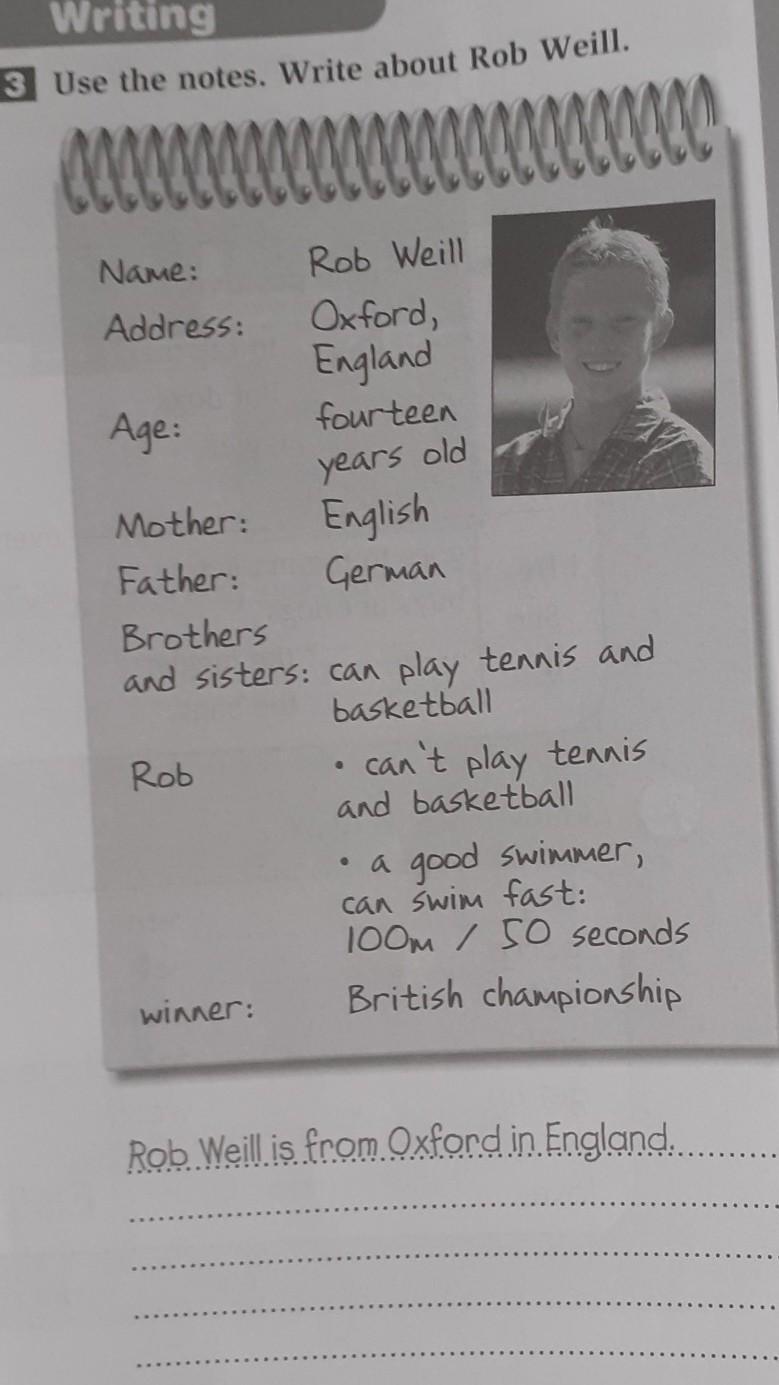 Writing
3 Use the notes. Write about Rob Weill.
Name: Rob Weill
Address: Oxford,
England
Age: fourteen
years old
Mother: English
Father: German
Brothers
and sisters: can play tennis and
basketball
Rob • can't play tennis
and basketball
• a good swimmer,
can swim fast:
100m / 50 seconds
winner: British championship
Rob Weill is from Oxford in England.